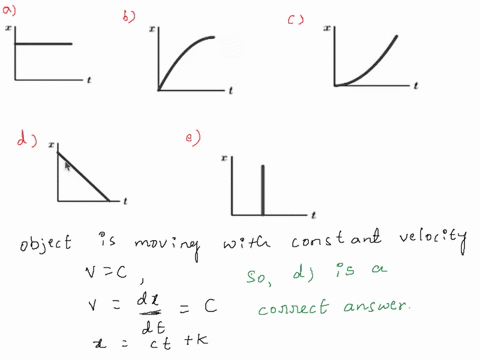 a)
b)
c)
x
t
x
t
x
t
d)
e)
x
t
x
t
object is moving with constant velocity
V = C ,
So, d) is a
v = dx/dt = C
correct answer.
x = ct + k